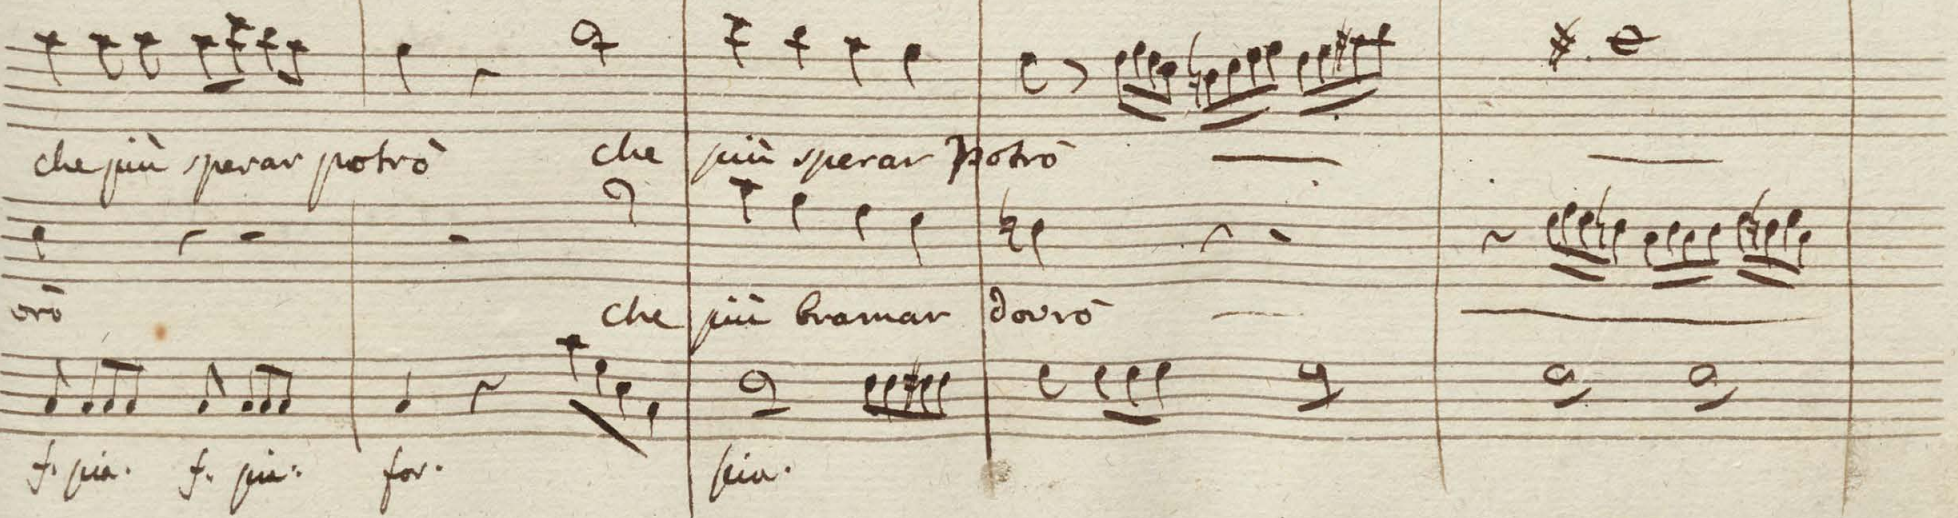 che più sperar potrò che più sperar potrò
vrò che più bramar dovrò
f. pia. f. pia: for. pia.